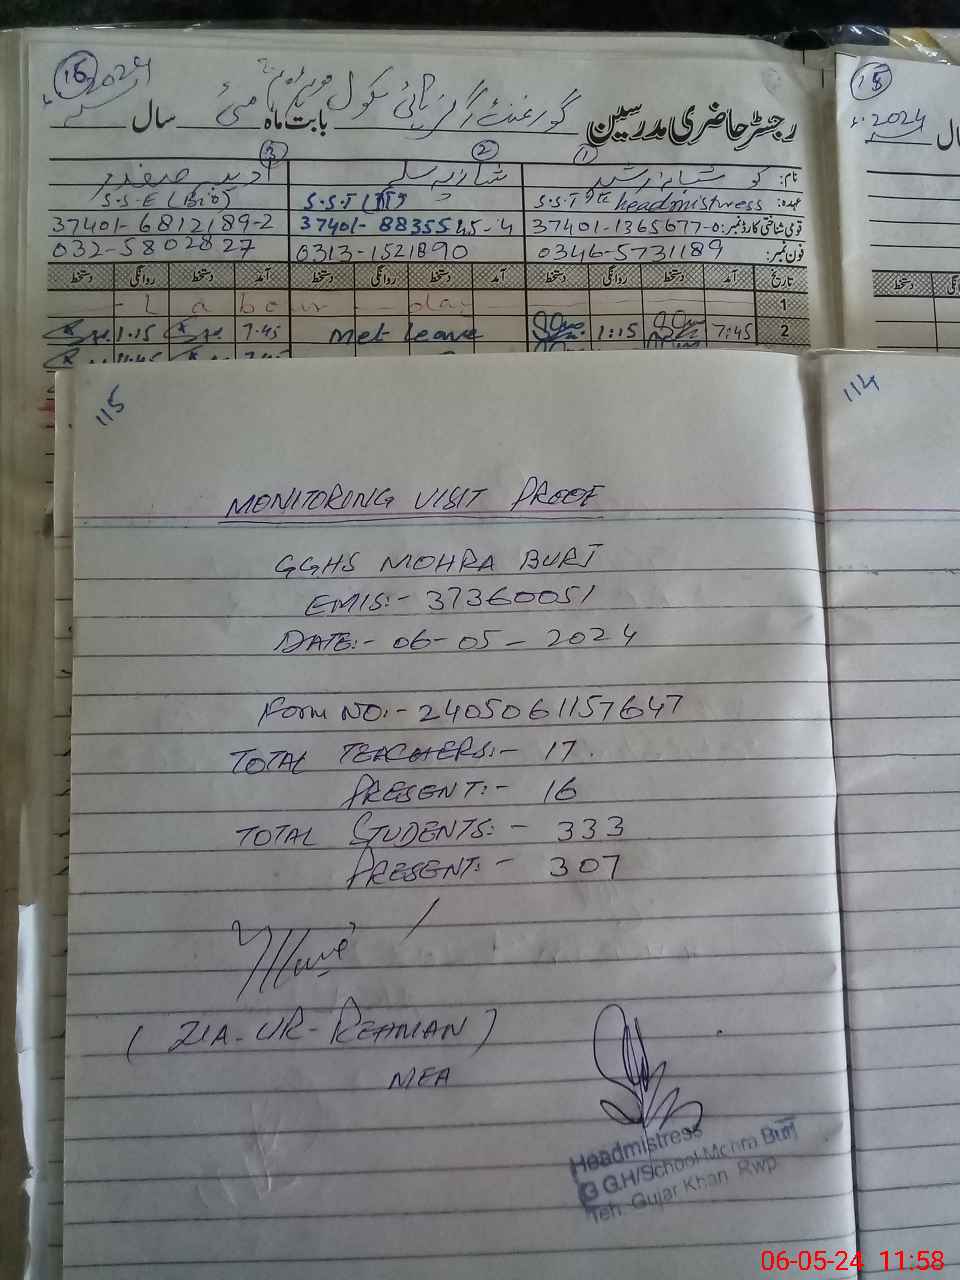 16
2024
سال
مئی
بابت ماہ
رجسٹر حاضری مدرسین
18
2024
3
2
1
نام:
شازیہ
عہدہ:
S.S.T headmistress
S.S.T
S.S.E (Bio)
قومی شناختی کارڈ نمبر:
37401-1365677-0
37401-8835545-4
37401-6812189-2
فون نمبر:
0346-5731189
0313-1521890
032-5802827
تاریخ آمد دستخط روانگی دستخط آمد دستخط روانگی دستخط آمد دستخط روانگی دستخط
1
Labour day
2 7:45 1:15 Met leave 7.45 1.15
115
114
MONITORING VISIT PROOF
GGHS MOHRA BURJ
EMIS:- 37360051
DATE:- 06-05-2024
Form NO:- 2405061157647
TOTAL TEACHERS:- 17.
PRESENT:- 16
TOTAL STUDENTS:- 333
PRESENT:- 307
(ZIA-UR-REHMAN)
MEA
Headmistress
G G.H/School Mohra Burj
Teh. Gujar Khan Rwp
06-05-24 11:58